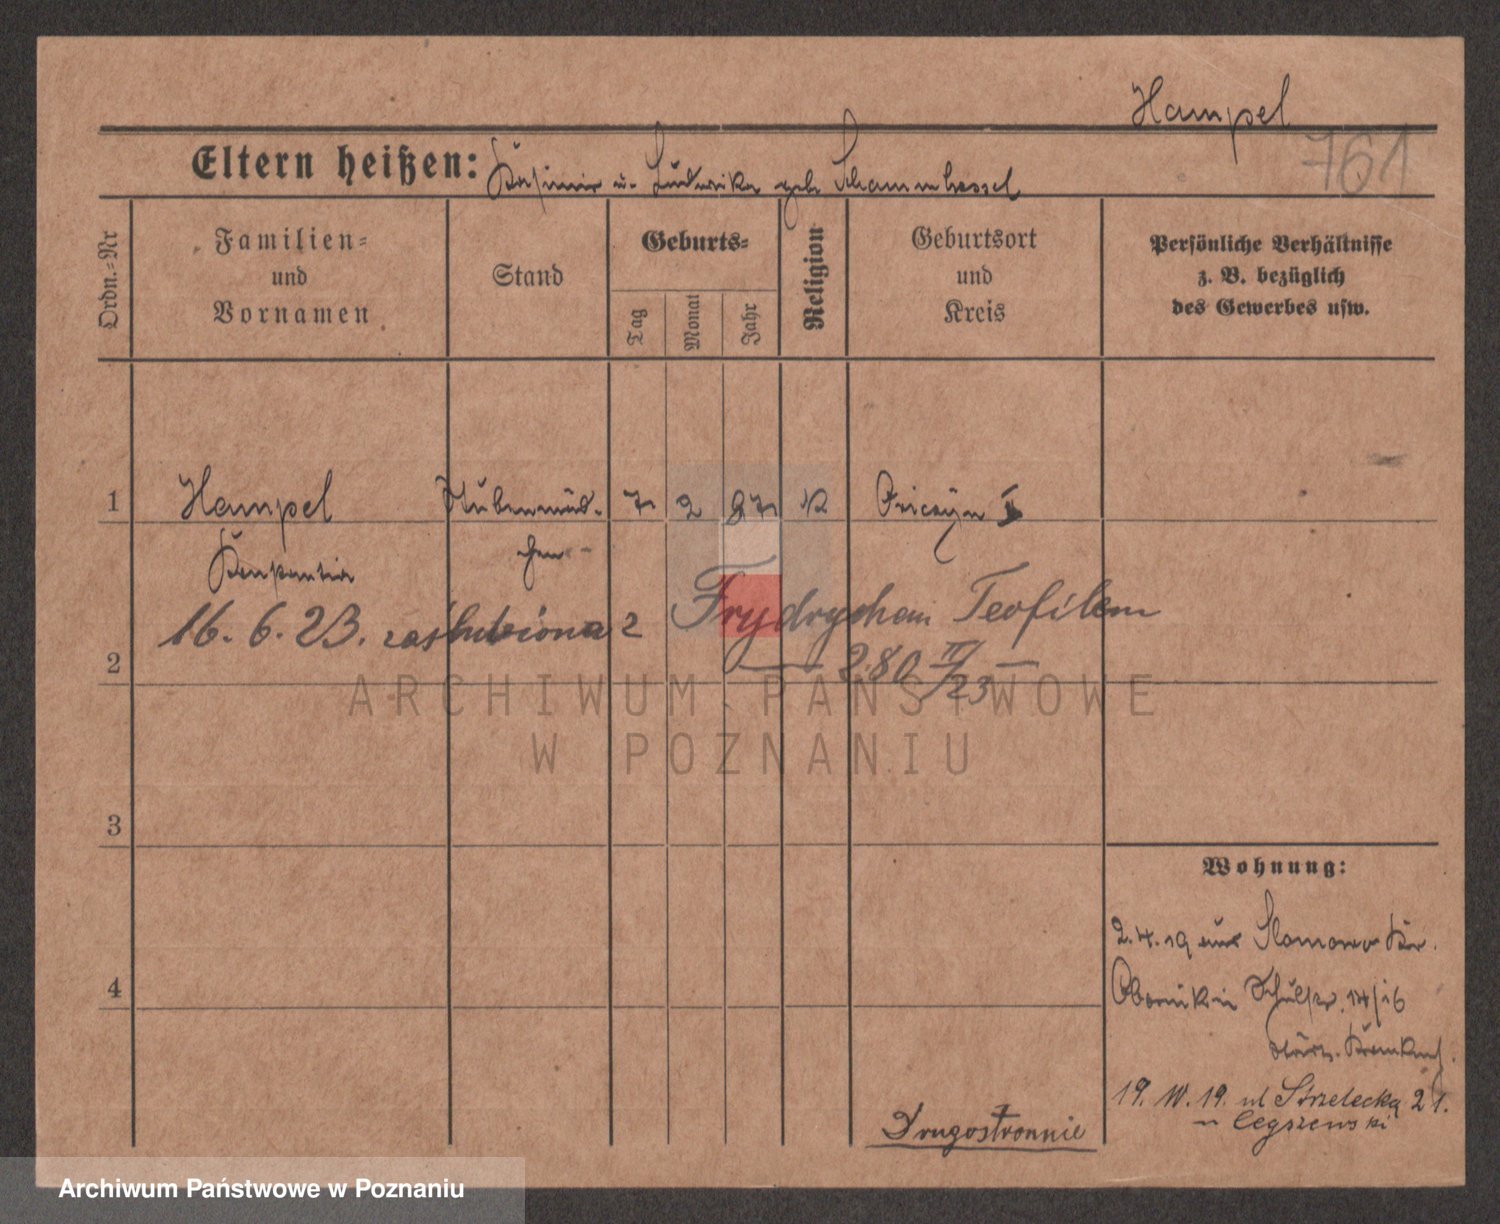 Hampel
761
Eltern heißen: Kasimir u. Ludwika geb.
Ordn.=Nr
Familien=
und
Vornamen
Stand
Geburts=
Tag
Monat
Jahr
Religion
Geburtsort
und
Kreis
Persönliche Verhältnisse
z. B. bezüglich
des Gewerbes usw.
1
Hampel
Stubenmäd-
7
2
97
K
chen
Konstantia
16. 6. 23. zaślubiona z Frydrychem Teofilem
2
280 IV/23
ARCHIWUM PAŃSTWOWE
W POZNANIU
3
Wohnung:
2.4.19 aus Slomowo Kr.
4
Obornik in Schulstr. 14/16
städt. Krankenh.
19. IV. 19. ul Strzelecka 21.
Drugostronnie
Archiwum Państwowe w Poznaniu